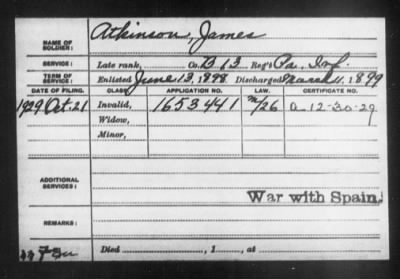 NAME OF SOLDIER: Atkinson, James
SERVICE: Late rank, Co. B 13 Reg't Pa. Inf.
TERM OF SERVICE: Enlisted June 13, 1898 Discharged March 11, 1899
DATE OF FILING. CLASS. APPLICATION NO. LAW. CERTIFICATE NO.
1929 Oct. 21 Invalid, 1653441 a 12-30-29
Widow,
Minor,
ADDITIONAL SERVICES:
War with Spain.
REMARKS:
Died , 1 , at